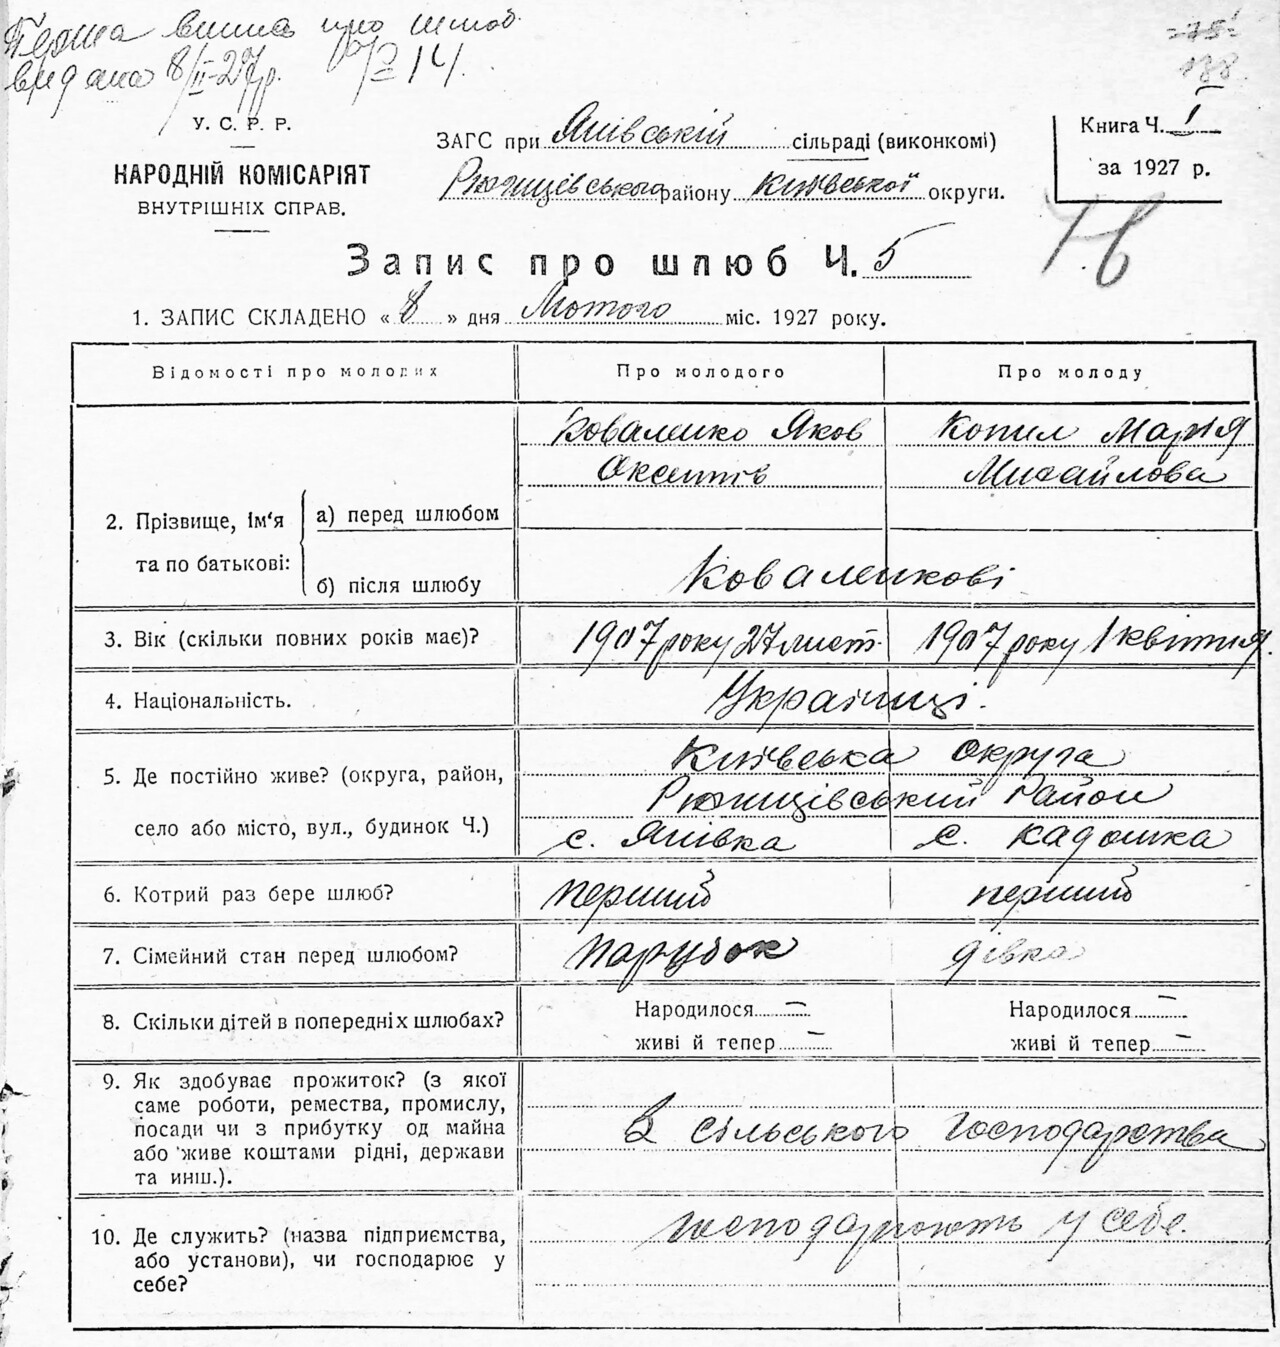 Перша випись про шлюб
видана 8/II-27р. № 14.
-75-
188
У. С. Р. Р.
НАРОДНІЙ КОМІСАРІЯТ
ВНУТРІШНІХ СПРАВ.
ЗАГС при Янівській сільраді (виконкомі)
Ржищівського району Київської округи.
Книга Ч. I
за 1927 р.
Запис про шлюб Ч. 5
1. ЗАПИС СКЛАДЕНО « 8 » дня Лютого міс. 1927 року.
Відомості про молодих Про молодого Про молоду
Коваленко Яков Копил Марія
Оксентів Михайлова
2. Прізвище, Ім'я та по батькові: а) перед шлюбом
б) після шлюбу Коваленкові
3. Вік (скільки повних років має)? 1907 року 27 лист. 1907 року 1 квітня.
4. Національність. Українці.
5. Де постійно живе? (округа, район, село або місто, вул., будинок Ч.)
Київська округа
Ржищівський Район
с. Янівка с. Кадомка
6. Котрий раз бере шлюб? перший перший
7. Сімейний стан перед шлюбом? парубок дівка
8. Скільки дітей в попередніх шлюбах? Народилося — Народилося —
живі й тепер — живі й тепер —
9. Як здобуває прожиток? (з якої
саме роботи, ремества, промислу,
посади чи з прибутку од майна
або живе коштами рідні, держави
та инш.).
З сільського господарства
10. Де служить? (назва підприємства,
або установи), чи господарює у
себе?
господарюють у себе.